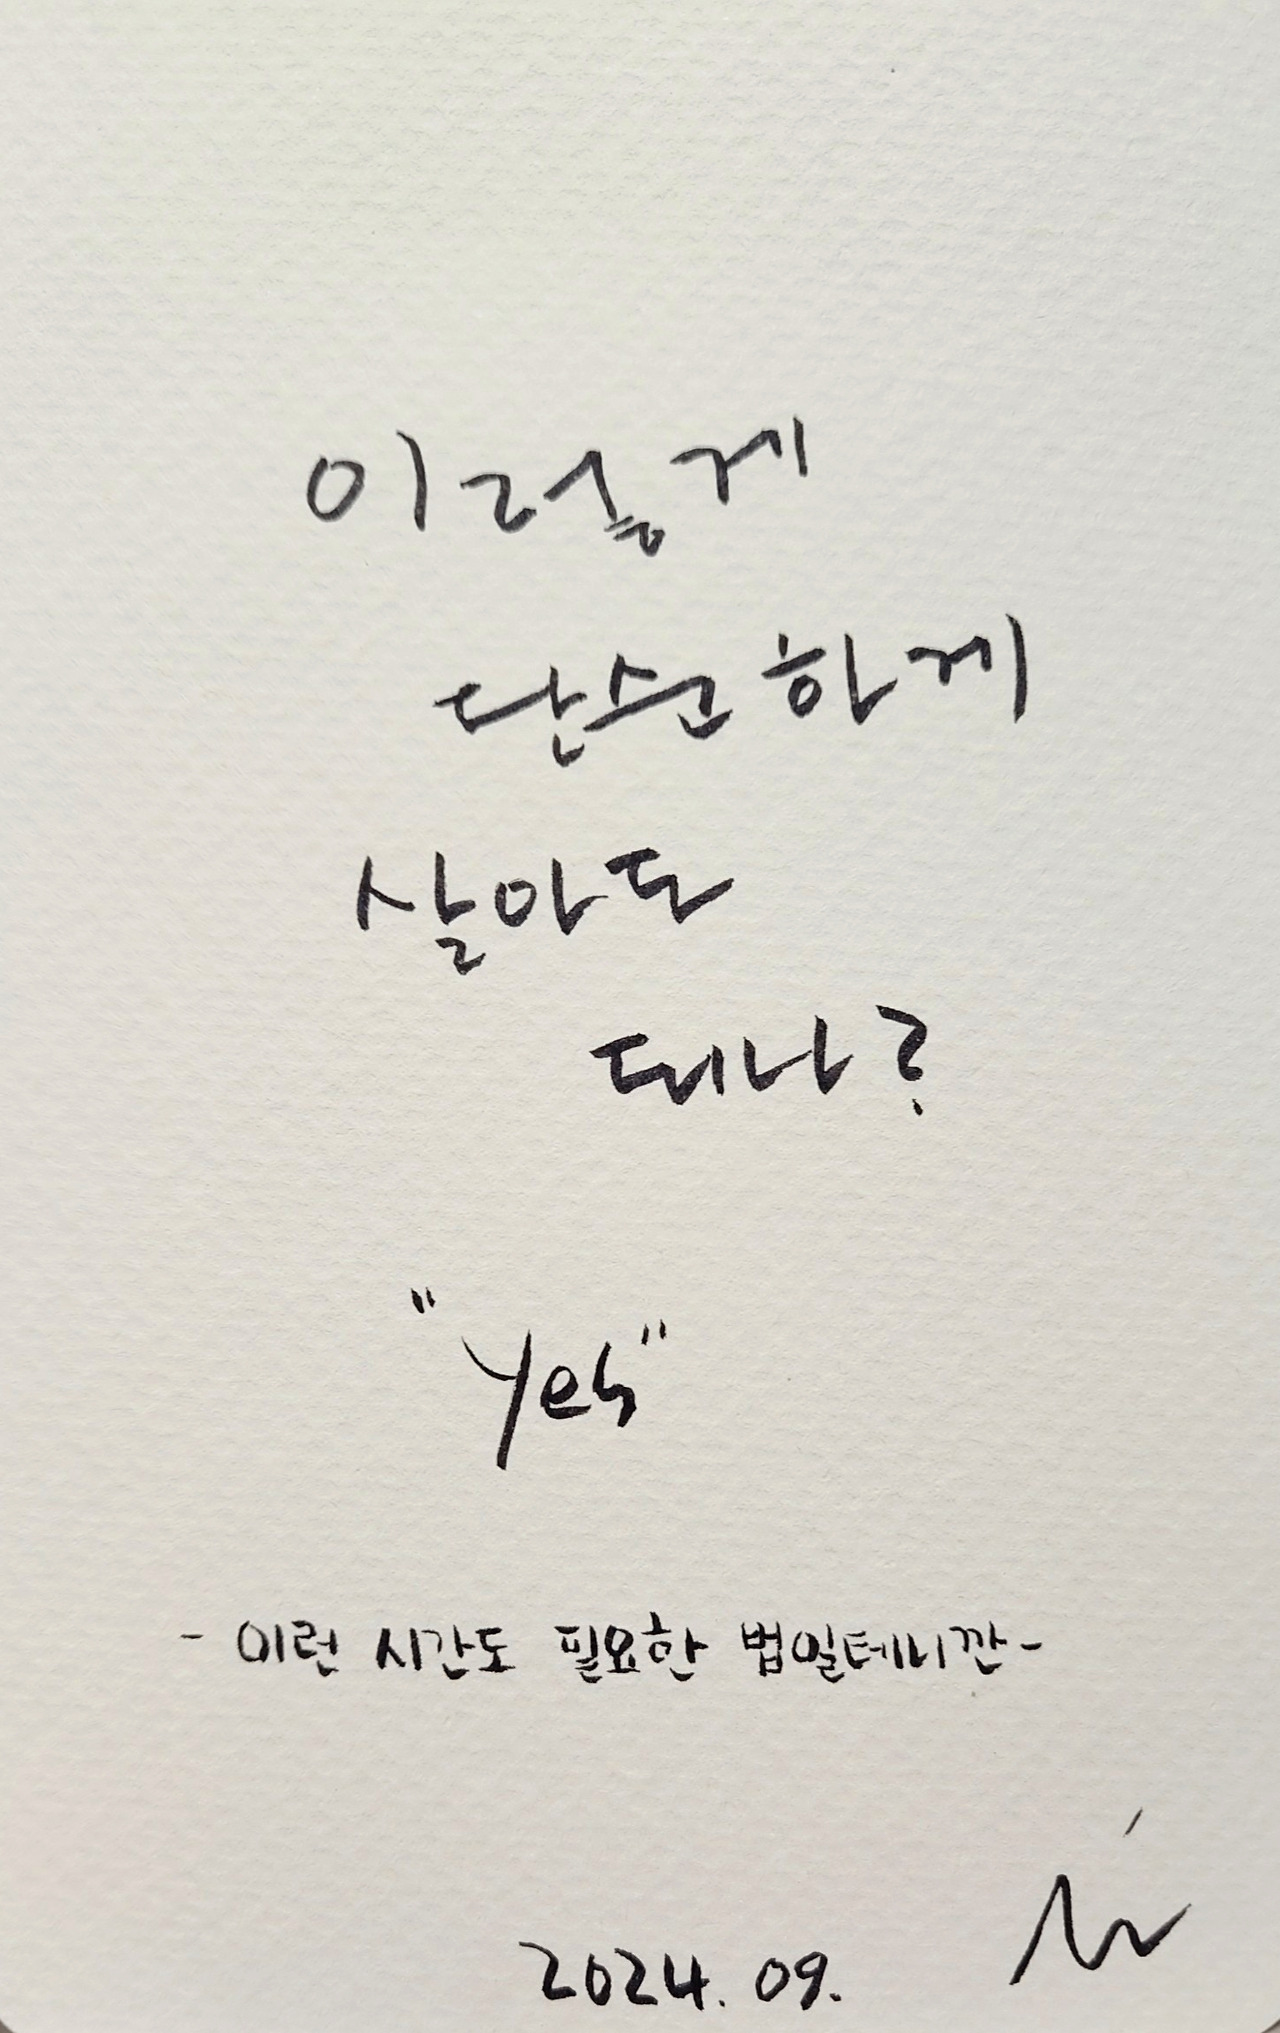 이렇게
단순하게
살아도
되나?
"yes"
- 이런 시간도 필요한 법일테니깐-
2024. 09.